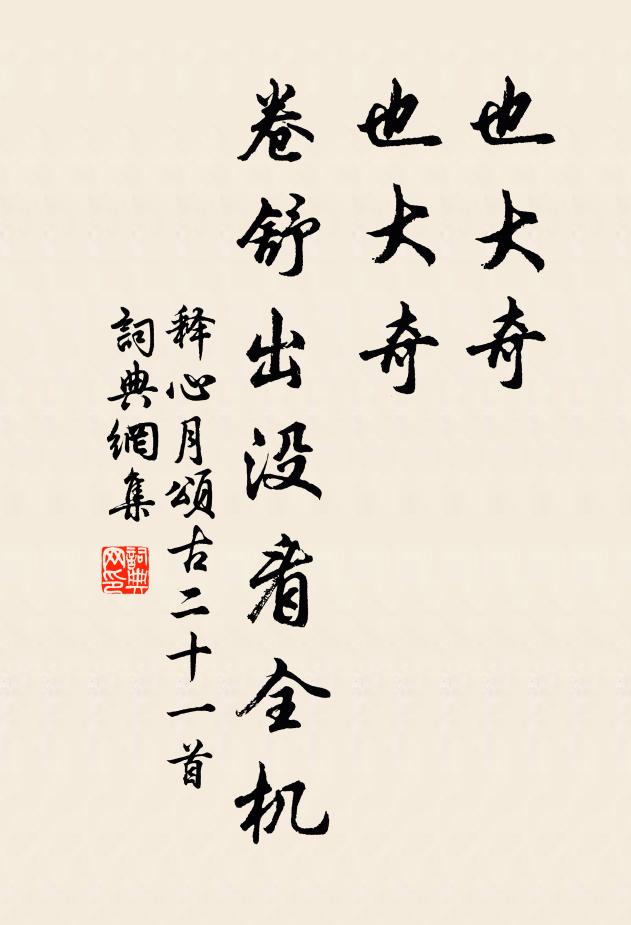 也大奇
也大奇
卷舒出没看全机
释心月頌古二十一首
詞典網集
詞典网印